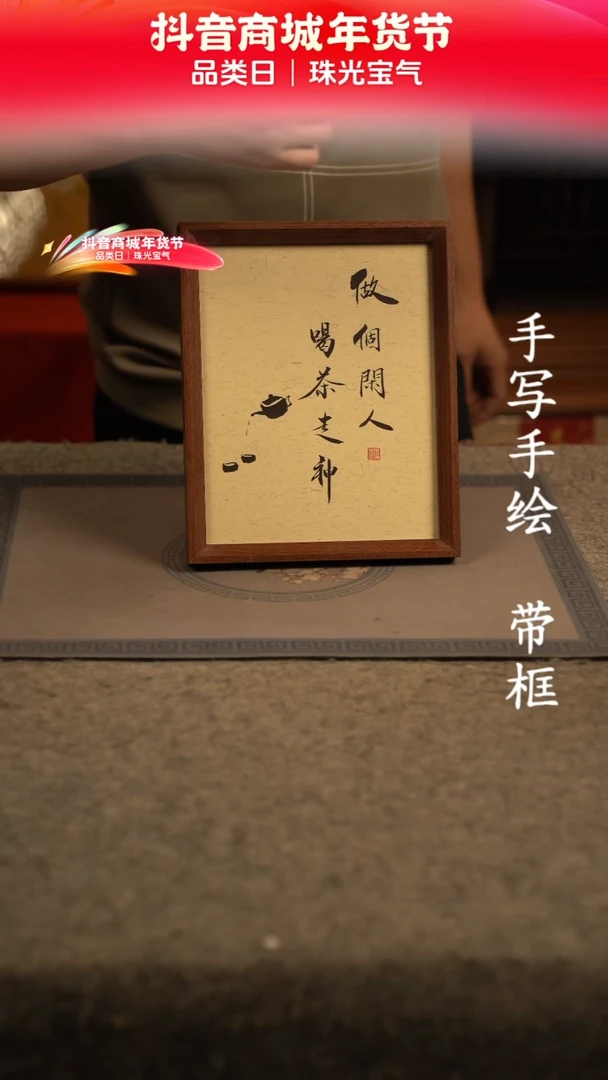 抖音商城年货节
品类日｜珠光宝气
抖音商城年货节
品类日｜珠光宝气
做個閑人
喝茶走神
手写手绘 带框